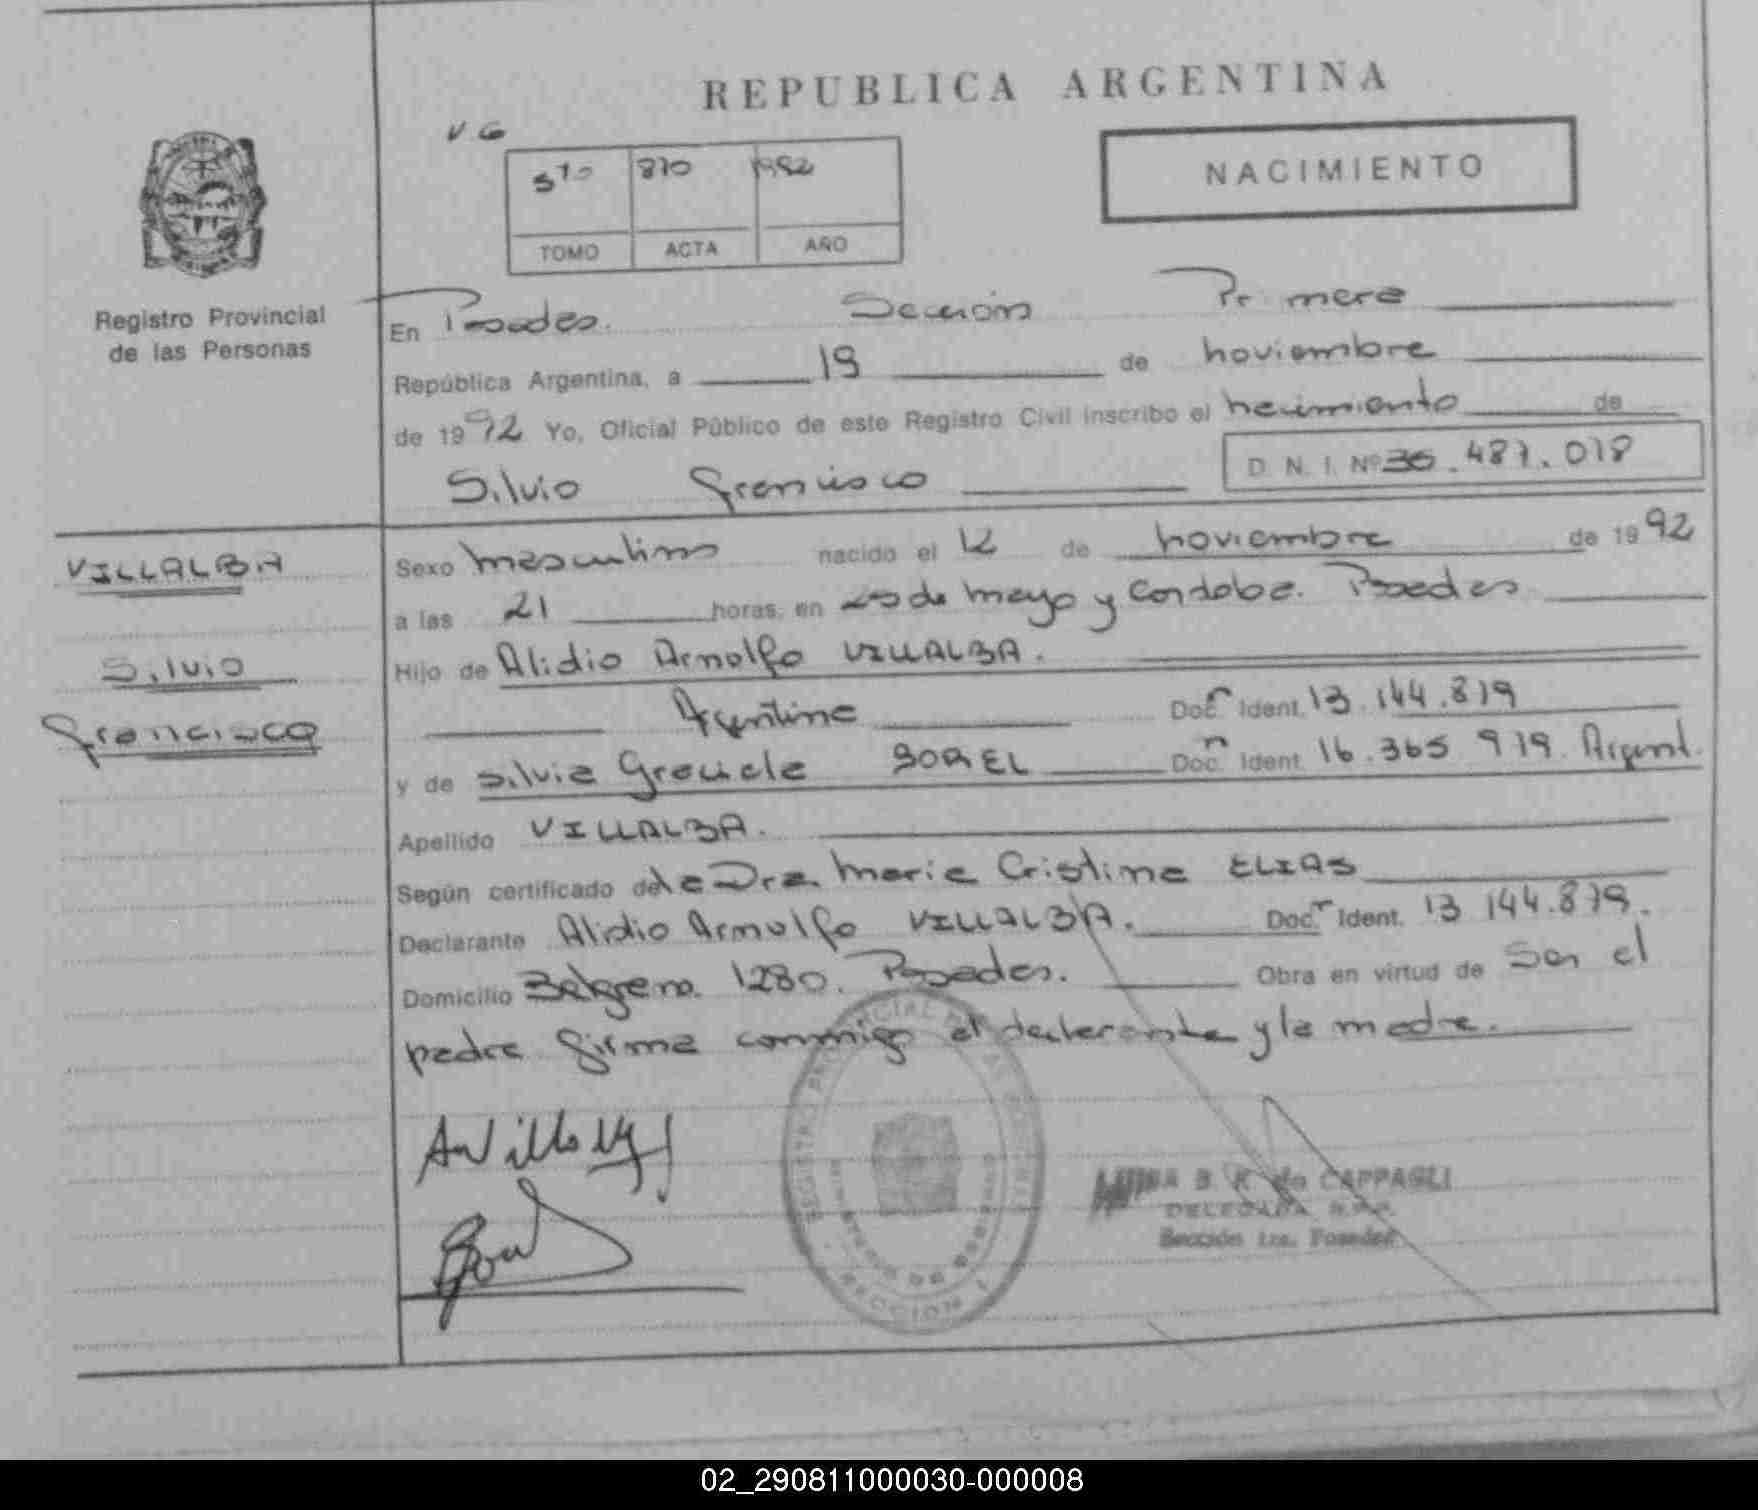 REPUBLICA ARGENTINA
V G
NACIMIENTO
5to 870 1992
TOMO ACTA AÑO
Registro Provincial
de las Personas
En Posadas. Sección Primera
República Argentina, a 19 de noviembre
de 1992 Yo, Oficial Público de este Registro Civil inscribo el nacimiento de
Silvio Francisco
D. N. I. Nº 36.487.078
VILLALBA
Silvio
Francisco
Sexo masculino nacido el 12 de noviembre de 1992
a las 21 horas, en 25 de Mayo y Cordoba. Posadas
Hijo de Alidio Arnolfo VILLALBA.
Argentino Doc. Ident. 13.144.879
y de Silvia Graciela BOREL Doc. Ident. 16.365.979. Argent.
Apellido VILLALBA.
Según certificado de la Dra. Maria Cristina ELIAS
Declarante Alidio Arnolfo VILLALBA. Doc. Ident. 13 144.879.
Domicilio Belgrano. 1280. Posadas. Obra en virtud de Ser el
padre firma conmigo el declarante y la madre.
B. K. de CAPPAGLI
DELEGADA R.P.P.
Sección 1ra. Posadas
REGISTRO PROVINCIAL DE LAS PERSONAS
MINISTERIO DE GOBIERNO
SECCION 1
02_290811000030-000008